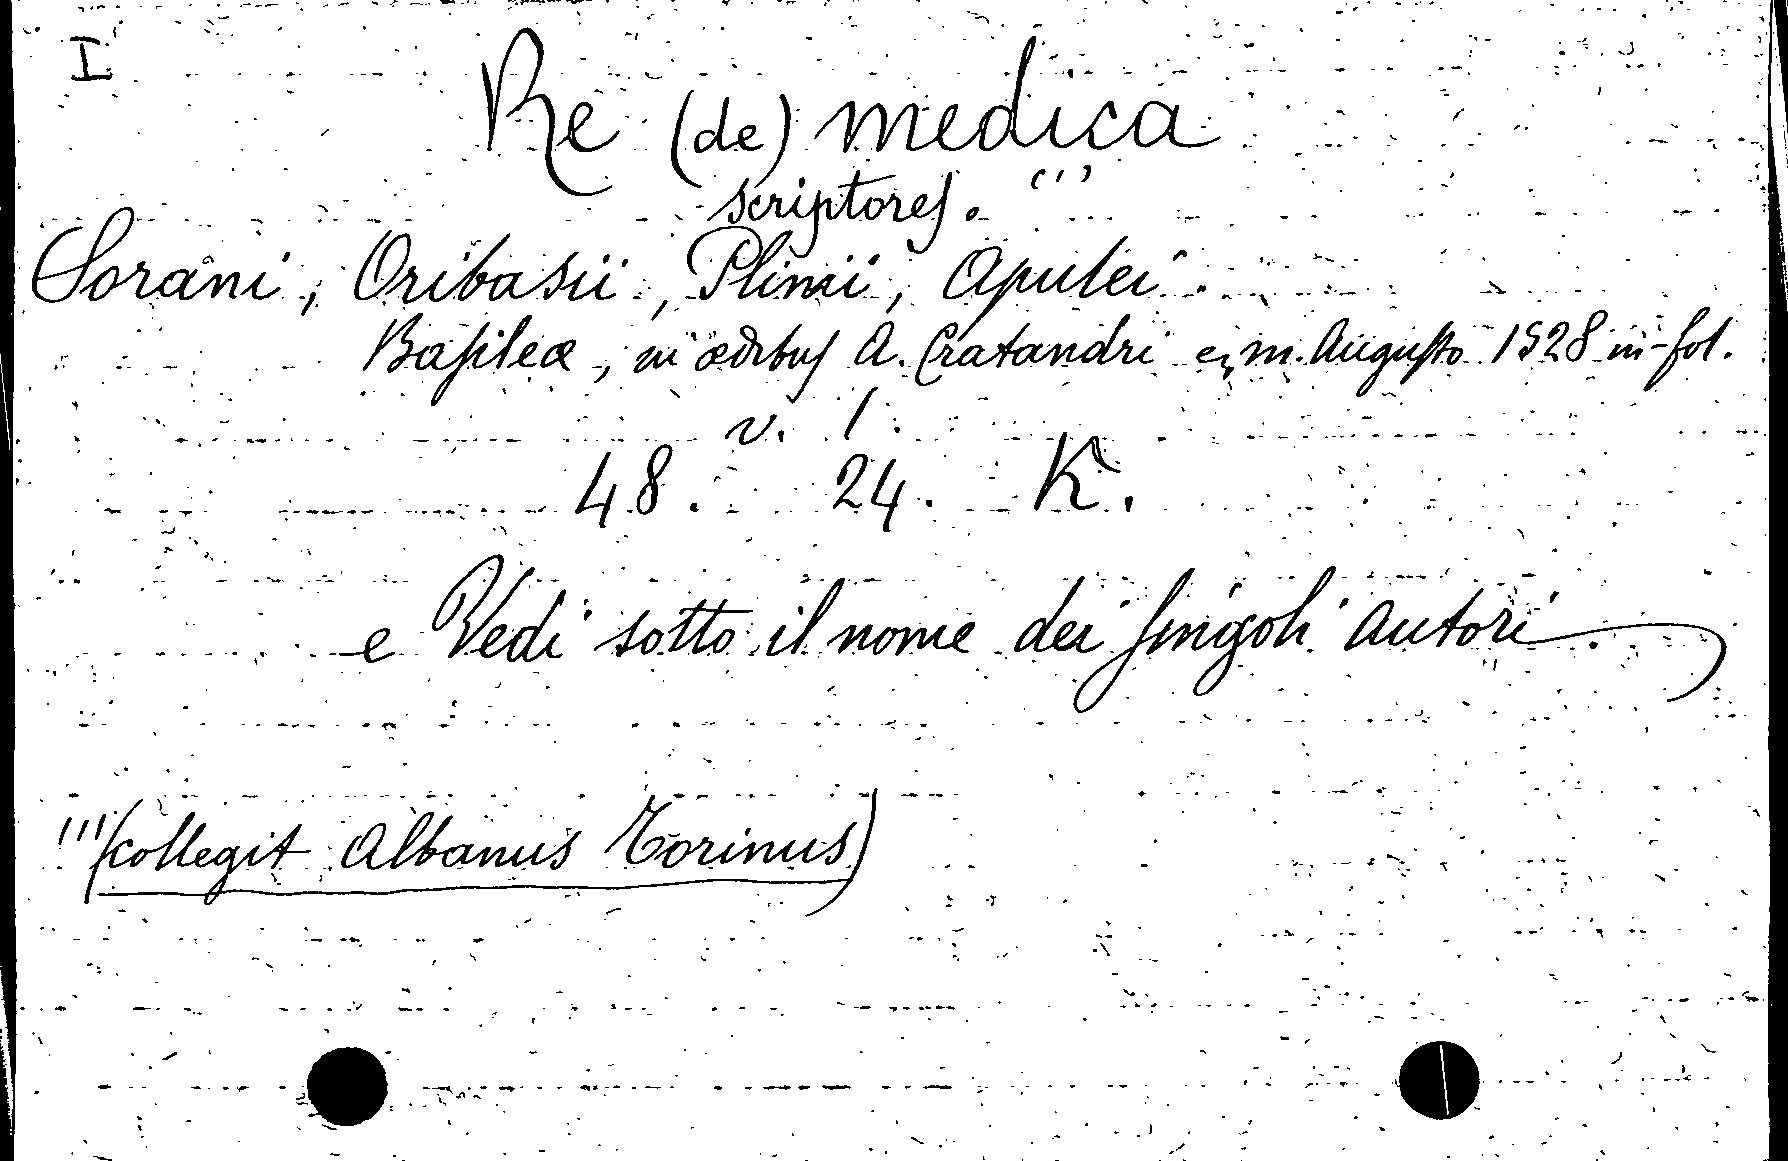 I
Re (de) medica
scriptores. (1)
Sorani, Oribasii, Plinii, Apulei
Basileæ, in ædibus A. Cratandri m. Augusto 1528 in-fol.
v. 1.
48. 24. K.
e Vedi sotto il nome dei singoli autori.
(1) (collegit Albanus Torinus)